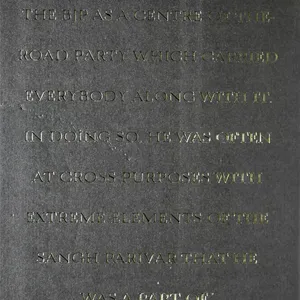 THE BJP AS A CENTRE OF THE
ROAD PARTY WHICH CARRIED
EVERYBODY ALONG WITH IT.
IN DOING SO, HE WAS OFTEN
AT CROSS PURPOSES WITH
EXTREME ELEMENTS OF THE
SANGH PARIVAR THAT HE
WAS A PART OF